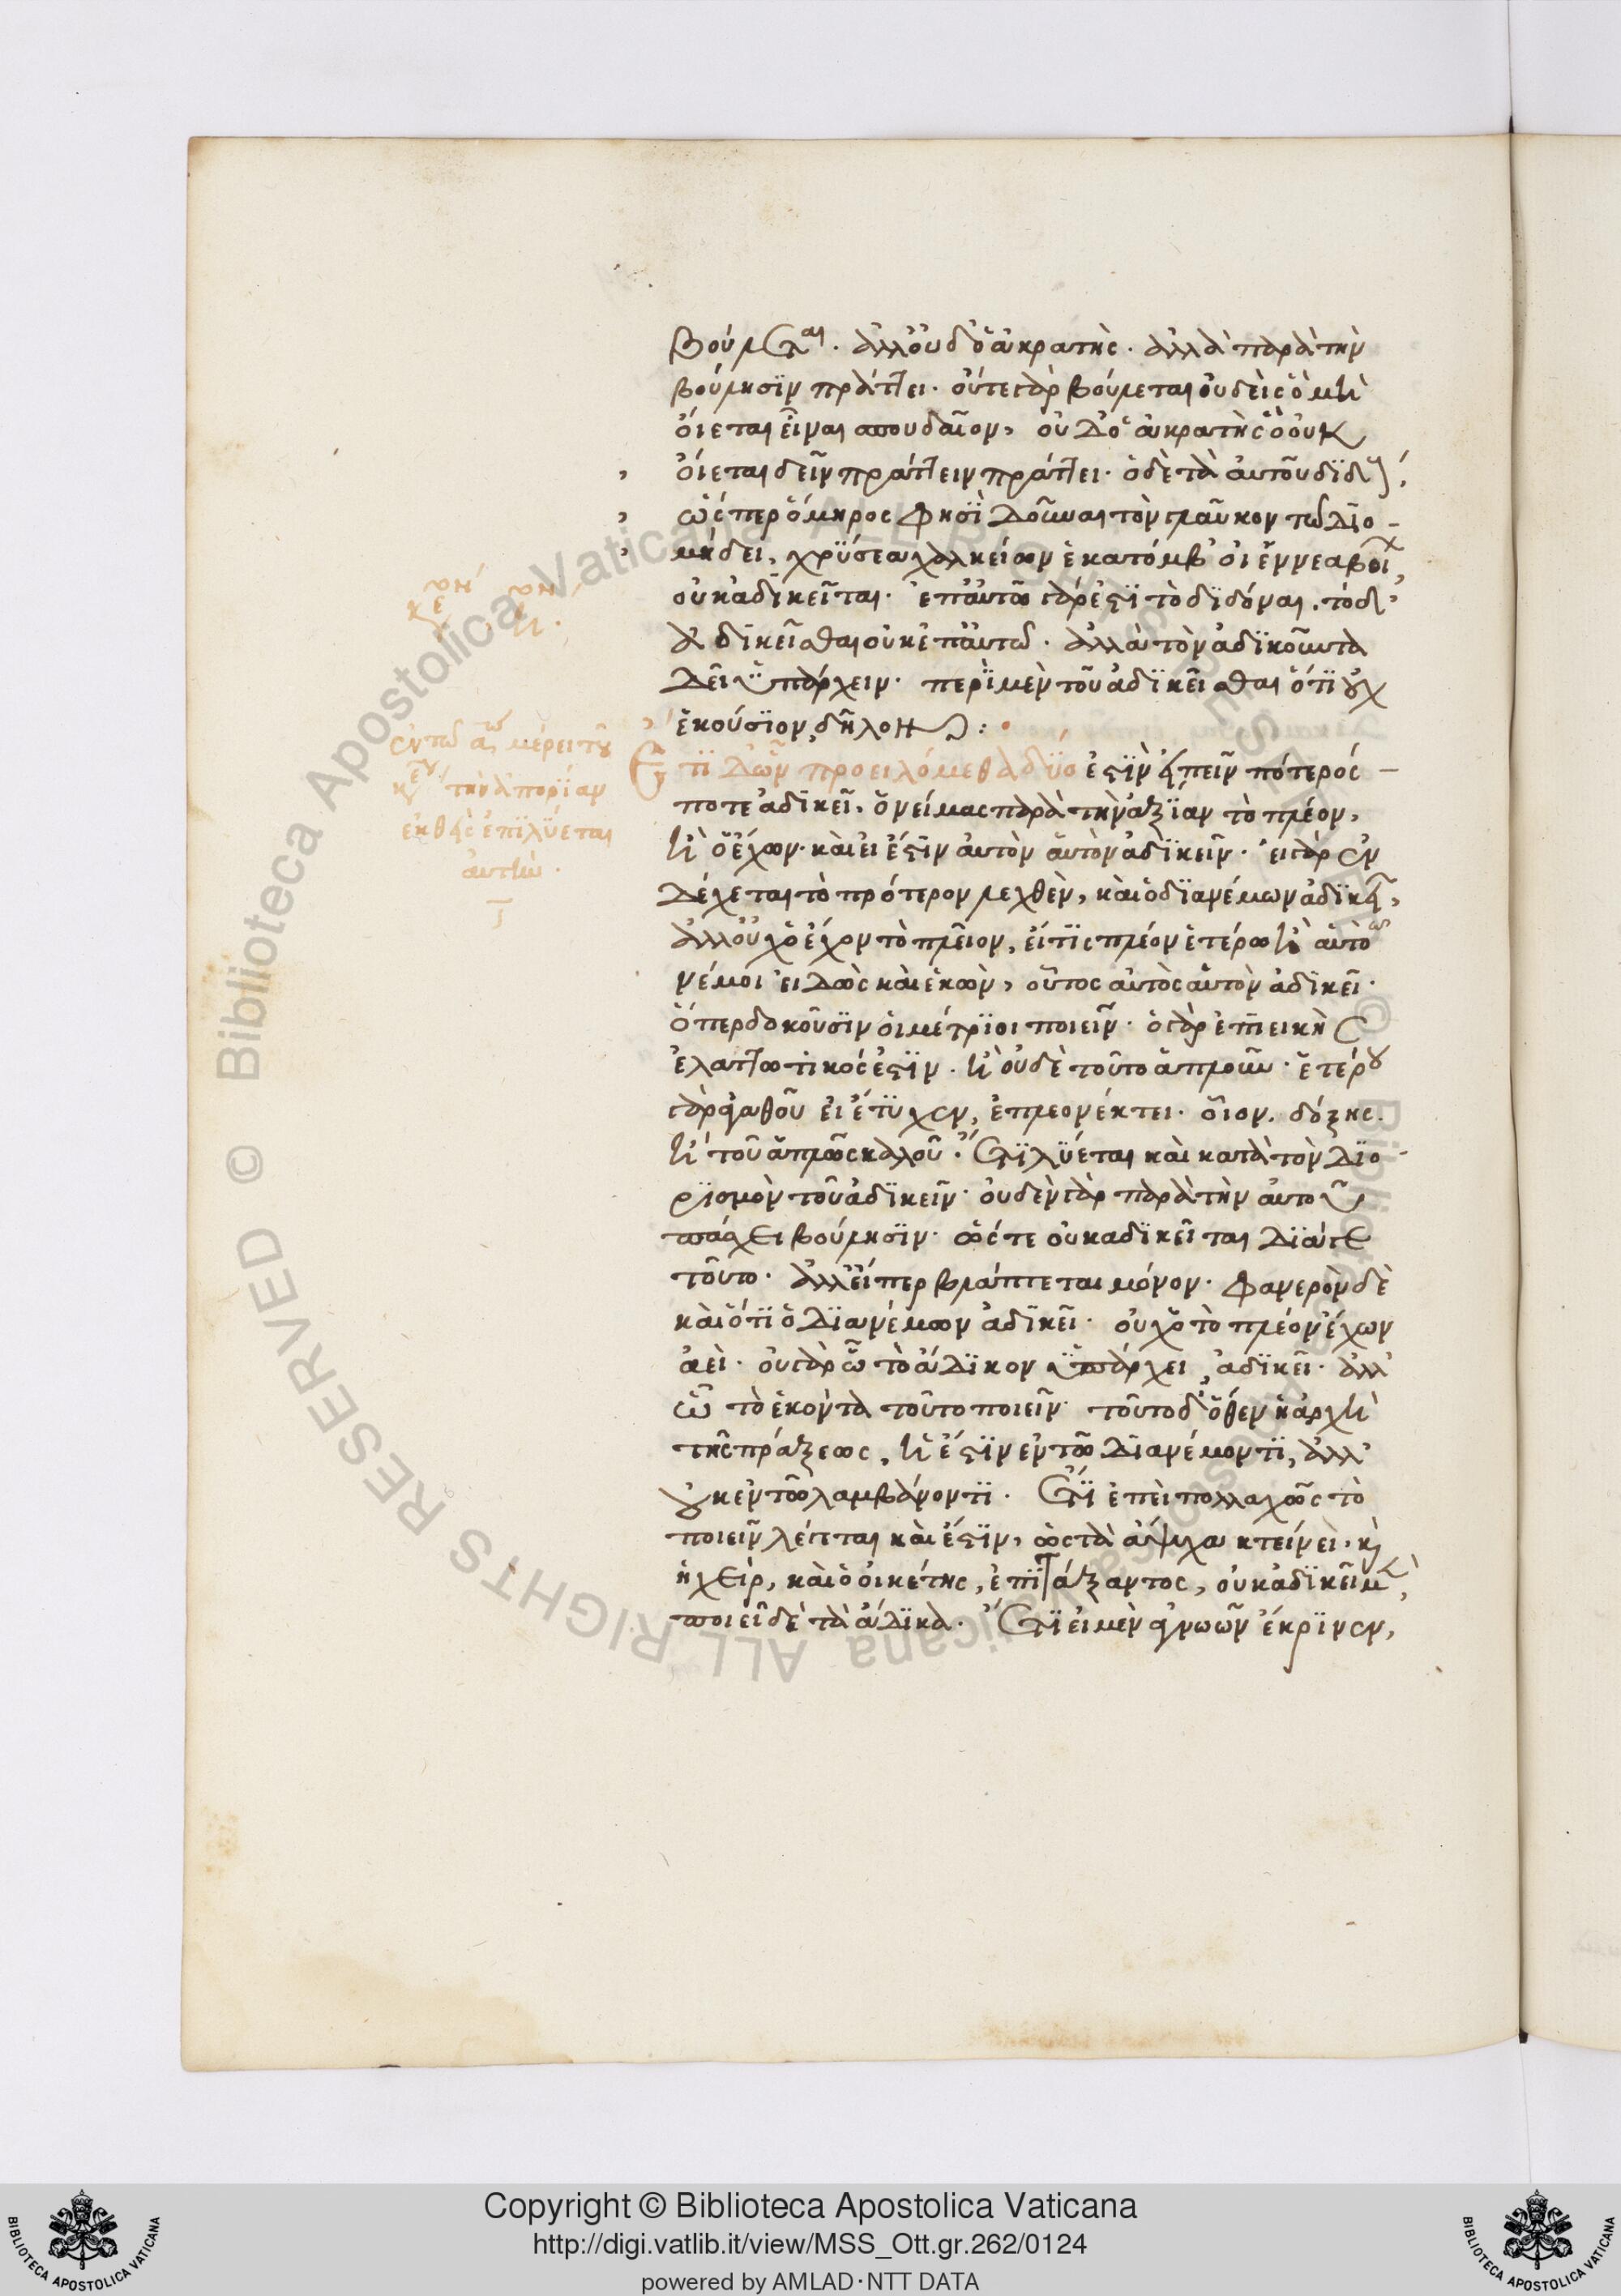 βούλεται. ἀλλ' οὐδ' ὁ ἀκρατής. ἀλλὰ παρὰ τὴν
βούλησιν πράττει. οὔτε γὰρ βούλεται οὐδεὶς ὃ μὴ
οἴεται εἶναι σπουδαῖον, οὐδ' ὁ ἀκρατὴς ὃ οὐκ
οἴεται δεῖν πράττειν πράττει. ὁ δὲ τὰ αὐτοῦ διδοὺς,
ὥσπερ ὅμηρος φησὶ δοῦναι τὸν γλαῦκον τῶ Διο-
μήδει, χρύσεα χαλκείων ἑκατόμβοι ἐννεαβοί,
οὐκ ἀδικεῖται. ἐπ' αὐτῶ γάρ ἐστι τὸ διδόναι. τὸ δ'
ἀδικεῖσθαι οὐκ ἐπ' αὐτῶ. ἀλλὰ τὸν ἀδικοῦντα
δεῖ ὑπάρχειν. περὶ μὲν τοῦ ἀδικεῖσθαι ὅτι οὐχ
ἑκούσιον, δῆλον :
Ἔτι δ' ὧν προειλόμεθα δύο ἐστὶν εἰπεῖν πότερός
ποτε ἀδικεῖ. ὁ νείμας παρὰ τὴν ἀξίαν τὸ πλέον,
ἢ ὁ ἔχων. καὶ εἰ ἔστιν αὐτὸν αὑτὸν ἀδικεῖν. εἰ γὰρ ἐν
δέχεται τὸ πρότερον λεχθὲν, καὶ ὁ διανέμων ἀδικεῖ,
ἀλλ' οὐχ ὁ ἔχων τὸ πλεῖον, εἴ τις πλέον ἑτέρω ἢ αὑτῶ
νέμοι εἰδὼς καὶ ἑκὼν, οὗτος αὐτὸς αὑτὸν ἀδικεῖ.
ὅπερ δοκοῦσιν οἱ μέτριοι ποιεῖν. ὁ γὰρ ἐπιεικὴς
ἐλαττωτικός ἐστιν. ἢ οὐδὲ τοῦτο ἁπλοῦν. ἑτέρου
γὰρ ἀγαθοῦ εἰ ἔτυχεν, ἐπλεονέκτει. οἷον. δόξης.
ἢ τοῦ ἁπλῶς καλοῦ. Ἔτι λύεται καὶ κατὰ τὸν διο-
ρισμὸν τοῦ ἀδικεῖν. οὐδὲν γὰρ παρὰ τὴν αὐτοῦ
πάσχει βούλησιν. ὥστε οὐκ ἀδικεῖται διά γε
τοῦτο. ἀλλ' εἴπερ βλάπτεται μόνον. φανερὸν δὲ
καὶ ὅτι ὁ διανέμων ἀδικεῖ. οὐχ ὁ τὸ πλέον ἔχων
ἀεὶ. οὐ γὰρ ὧ τὸ ἄδικον ὑπάρχει, ἀδικεῖ. ἀλλ'
ὧ τὸ ἑκόντα τοῦτο ποιεῖν. τοῦτο δ' ὅθεν ἡ ἀρχὴ
τῆς πράξεως, ἥ ἐστιν ἐν τῶ διανέμοντι, ἀλλ'
οὐκ ἐν τῶ λαμβάνοντι. Ἔτι ἐπεὶ πολλαχῶς τὸ
ποιεῖν λέγεται καὶ ἔστιν, ὡς τὰ ἄψυχα κτείνει, καὶ
ἡ χεὶρ, καὶ ὁ οἰκέτης, ἐπιτάξαντος, οὐκ ἀδικεῖ μὲν,
ποιεῖ δὲ τὰ ἄδικα. Ἔτι εἰ μὲν ἀγνοῶν ἔκρινεν,
ἐν τῶ αω μέρει τοῦ
τὴν ἀπορίαν
ἐκθεὶς ἐπιλύεται
αὐτὴν.
Copyright © Biblioteca Apostolica Vaticana
http://digi.vatlib.it/view/MSS_Ott.gr.262/0124
powered by AMLAD·NTT DATA
BIBLIOTECA APOSTOLICA VATICANA
BIBLIOTECA APOSTOLICA VATICANA
© Biblioteca Apostolica Vaticana ALL RIGHTS RESERVED